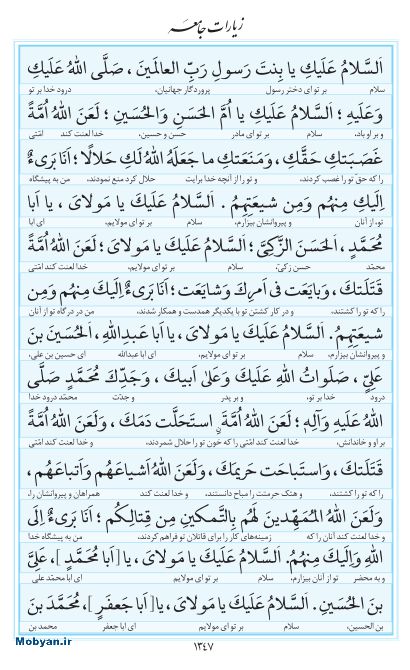 زیارات جامعه
اَلسَّلامُ عَلَيكِ يا بِنتَ رَسولِ رَبِّ العالَمينَ ، صَلَّى اللهُ عَلَيكِ
سلام بر تو ای دختر رسول پروردگار جهانیان، درود خدا بر تو
وَعَلَيهِ ؛ اَلسَّلامُ عَلَيكِ يا اُمَّ الحَسَنِ وَالحُسَينِ ؛ لَعَنَ اللهُ اُمَّةً
و بر او باد، سلام بر تو ای مادر حسن و حسین، خدا لعنت کند امّتی
غَصَبَتكِ حَقَّكِ ، وَمَنَعَتكِ ما جَعَلَهُ اللهُ لَكِ حَلالًا ؛ اَنَا بَرىءٌ
را که حق تو را غصب کردند، و تو را از آنچه خدا برایت حلال کرد منع نمودند، من به پیشگاه
اِلَيكِ مِنهُم وَمِن شيعَتِهِم . اَلسَّلامُ عَلَيكَ يا مَولاىَ ، يا اَبا
تو، از آنان و پیروانشان بیزارم، سلام بر تو ای مولایم، ای ابا
مُحَمَّدٍ ، اَلحَسَنَ الزَّكِىَّ ؛ اَلسَّلامُ عَلَيكَ يا مَولاىَ ؛ لَعَنَ اللهُ اُمَّةً
محمّد حسن زکیّ، سلام بر تو ای مولایم، خدا لعنت کند امّتی
قَتَلَتكَ ، وَبايَعَت فى اَمرِكَ وَشايَعَت ؛ اَنَا بَرىءٌ اِلَيكَ مِنهُم وَمِن
را که تو را کشتند، و در کار کشتن تو با یکدیگر همدست و همکار شدند، من در درگاه تو از آنان
شيعَتِهِم . اَلسَّلامُ عَلَيكَ يا مَولاىَ ، يا اَبا عَبدِاللهِ ، اَلحُسَينَ بنَ
و پیروانشان بیزارم، سلام بر تو ای مولایم، ای ابا عبدالله ای حسین بن علی،
عَلِىٍّ ، صَلَواتُ اللهِ عَلَيكَ وَعَلىٰ اَبيكَ ، وَجَدِّكَ مُحَمَّدٍ صَلَّى
درود خدا بر تو، و بر پدر و جدّت محمّد درود خدا
اللهُ عَلَيهِ وَآلِهِ ؛ لَعَنَ اللهُ اُمَّةً اِستَحَلَّت دَمَكَ ، وَلَعَنَ اللهُ اُمَّةً
بر او و خاندانش، خدا لعنت کند امّتی را که خون تو را حلال شمردند، و خدا لعنت کند امّتی
قَتَلَتكَ ، وَاستَباحَت حَريمَكَ ، وَلَعَنَ اللهُ اَشياعَهُم وَاَتباعَهُم ،
را که تو را کشتند، و هتک حرمتت را مباح دانستند، و خدا لعنت کند همراهان و پیروانشان را،
وَلَعَنَ اللهُ المُمَهِّدينَ لَهُم بِالتَّمكينِ مِن قِتالِكُم ؛ اَنَا بَرىءٌ اِلَى
و خدا لعنت کند آنان را که زمینه‌های کار را برای قاتلان تو فراهم کردند، من به پیشگاه خدا
اللهِ وَاِلَيكَ مِنهُم. اَلسَّلامُ عَلَيكَ يا مَولاىَ ، يا [اَبا مُحَمَّدٍ ]، عَلِىَّ
و به محضر تو از آنان بیزارم، سلام بر تو ای مولایم ای ابا محمّد علی
بنَ الحُسَينِ. اَلسَّلامُ عَلَيكَ يا مَولاىَ ، يا[ اَبا جَعفَرٍ ]، مُحَمَّدَ بنَ
بن الحسین، سلام بر تو ای مولایم ای ابا جعفر محمد بن
۱۳۴۷
Mobyan.ir